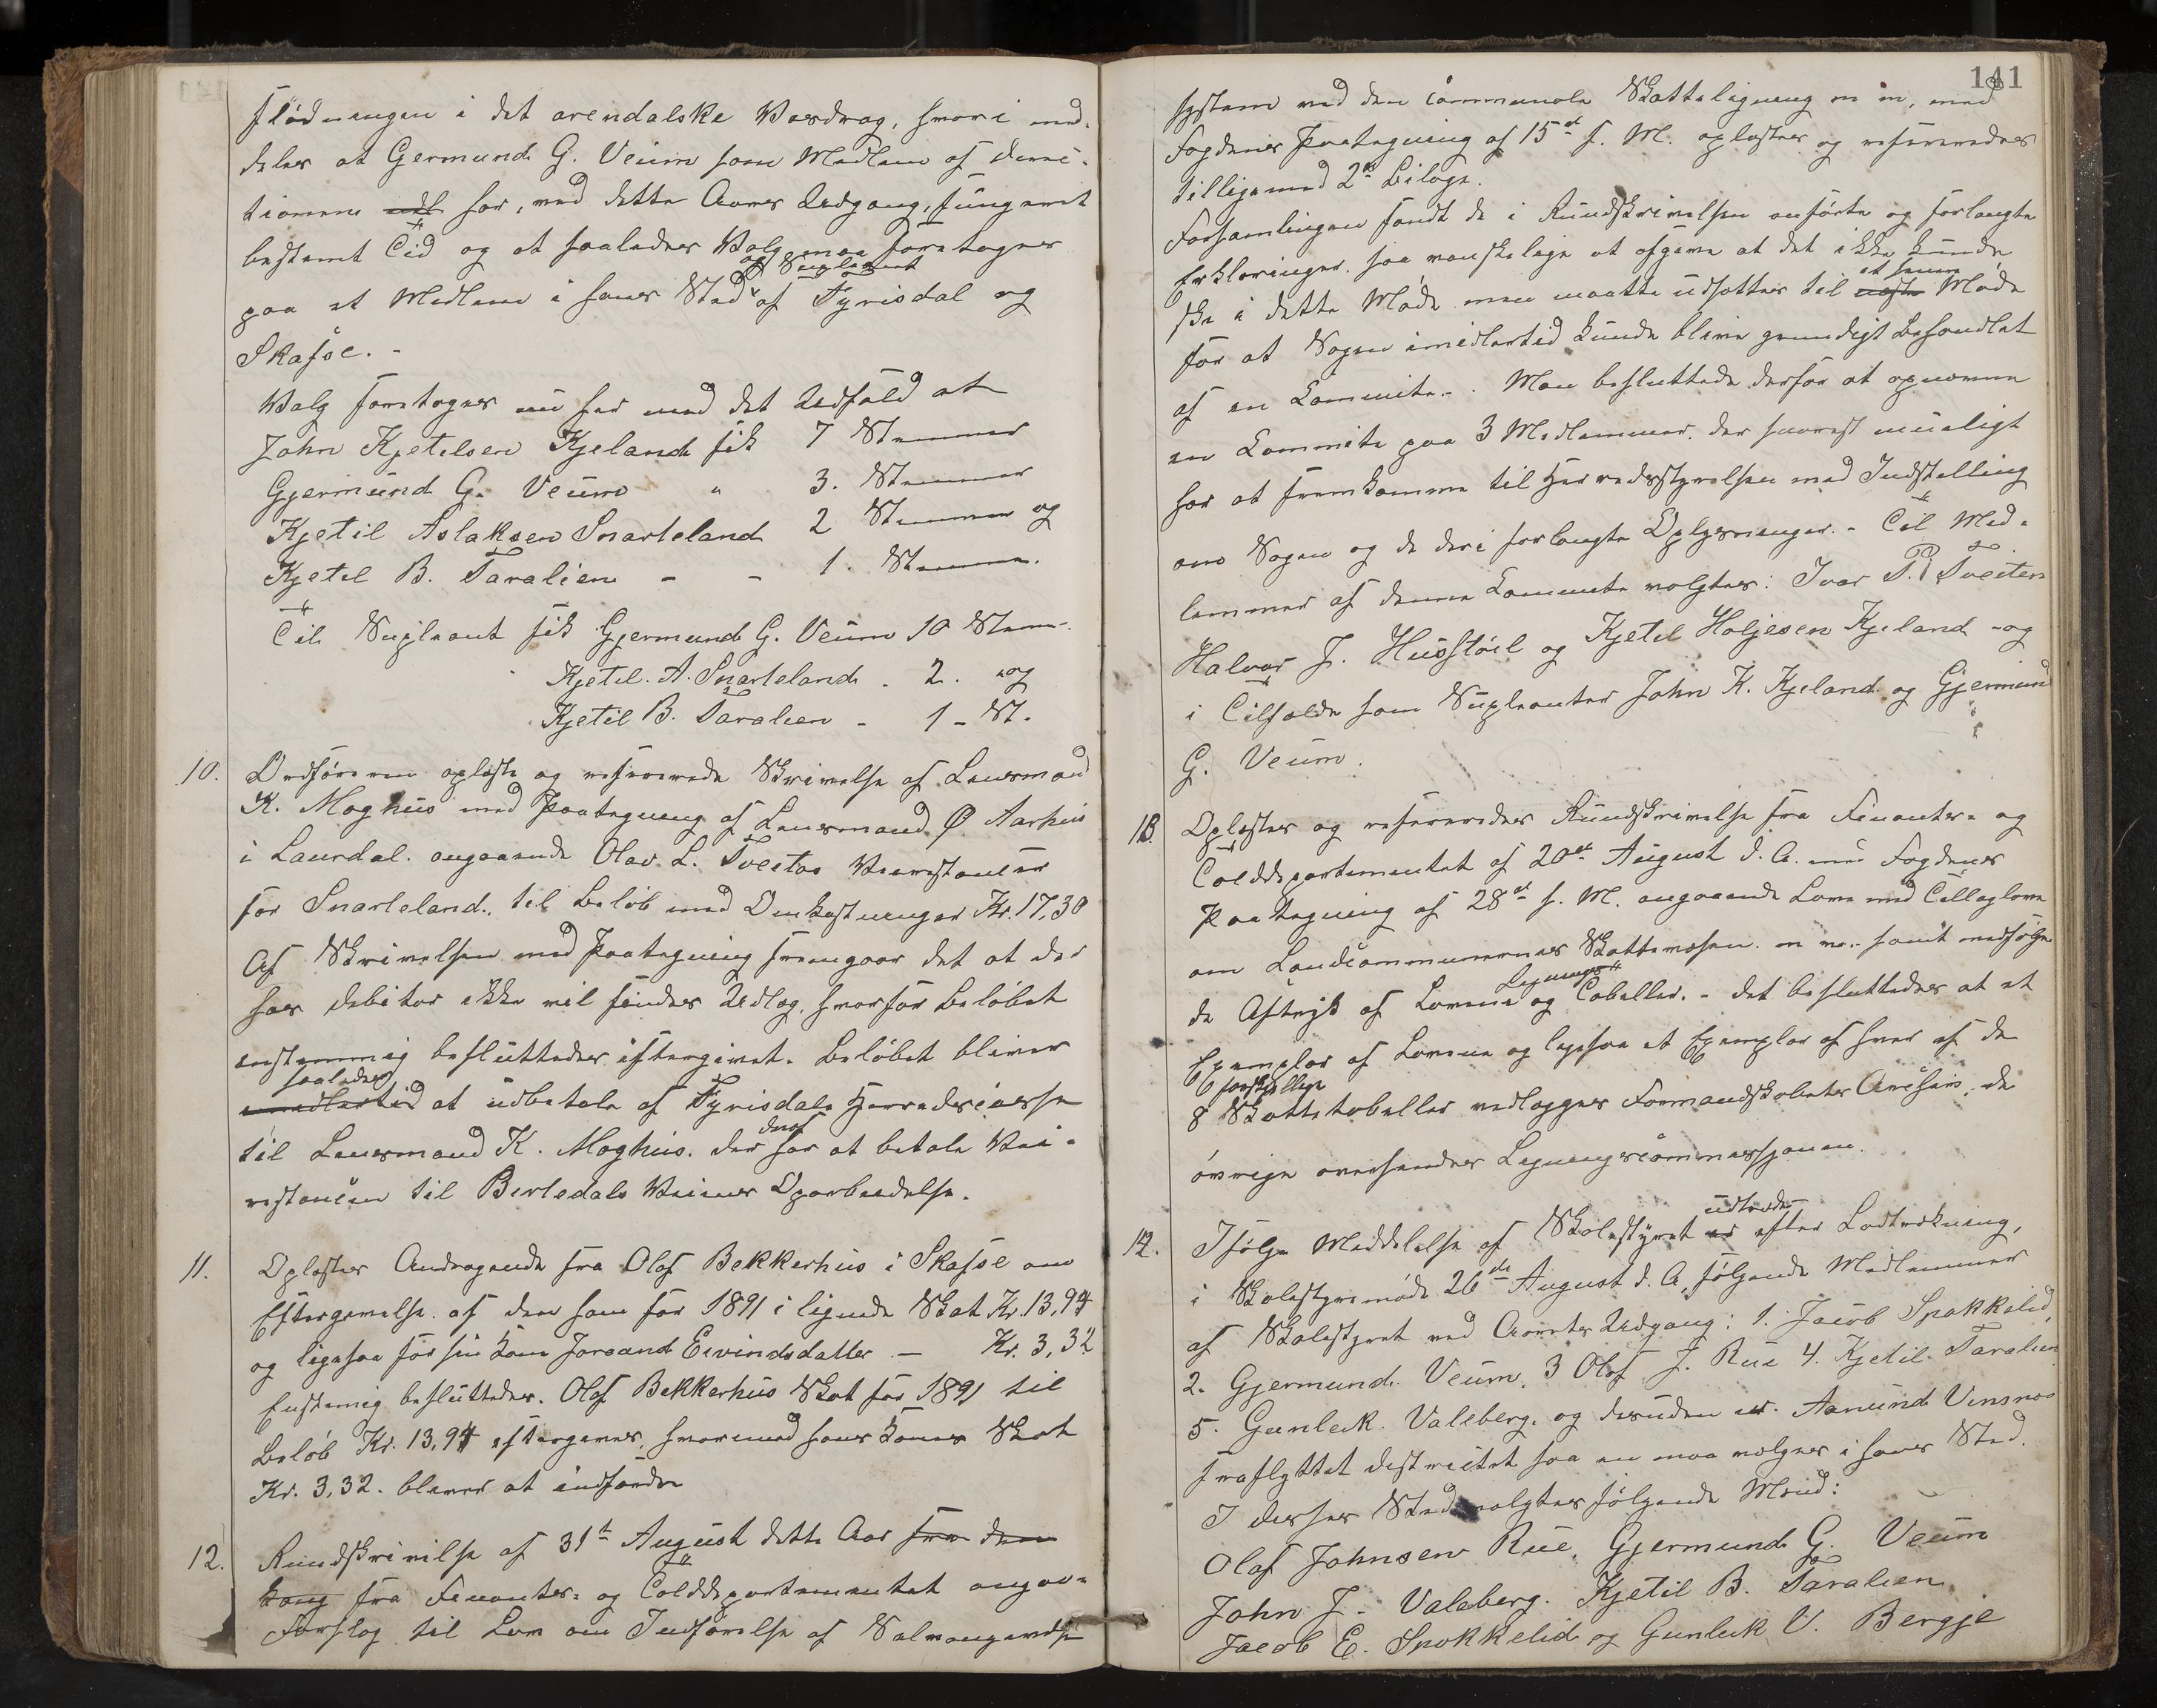 Flødningen i det arendalske Vasdrag, hvori med-
deles at Germund G. Veum som Medlem af Direc-
tionen har, ved dette Aars Udgang, fungeret
bestemt Tid og at saaledes Valg maa foretages
og Supleant
paa et Medlem i hans Sted af Fyrisdal og
Skafse. -
Valg foretages nu her med det Udfald at
John Kjetelsen Kjeland fik 7 Stemmer
Gjermund G. Veum " 3. Stemmer
Kjetil Aslaksen Snarteland 2 Stemmer og
Kjetel B. Taralien - - 1. Stemme.
Til Supleant fik Gjermund G. Veum 10 Stem-
Kjetel. A. Snarteland. - 2. " og
Kjetil B. Taralien - 1 - St.
10. Ordføreren oplæste og refererede Skrivelse af Lensmand
K. Moghus med Paategning af Lensmand Ø Aarhus
i Laurdal. angaaende Olav L. Tveitas Veirestancer
for Snarteland., til Beløb med Omkostninger Kr. 17,30
Af Skrivelsen med Paategning fremgaar det at der
hos Debitor ikke vil findes Udlæg, hvorfor Beløbet
enstemmig besluttedes eftergivet. Beløbet bliver
saaledes
imidlertid at udbetale af Fyrisdals Herredscasse
deraf
til Lensmand K. Moghus. der har at betale Vei-
restancen til Berledals Veiens Oparbeidelse.
11. Oplæstes Andragende fra Olaf Bekkerhus i Skafse om
Eftergivelse af den ham for 1891 i lignede Skat Kr. 13,94
og ligesaa for sin Kone Joraand Eivindsdatter - Kr. 3,32
Enstemig besluttedes. Olaf Bekkerhus Skat for 1891 til
Beløb Kr. 13,94 eftergives, hvorimod hans Kones Skat
Kr. 3,32. bliver at indfordre
12. Rundskrivelse af 31te August dette Aar fra den
fra Finants- og Tolddepartementet angaa-
Forslag til Lov om Indførelse af Selvangivelses
141
system ved den communale Skatteligning m m, med
Fogdens Paategning af 15de s. M. oplæstes og refereredes
tilligemed 2de Bilage.
Forsamlingen fandt de i Rundskrivelsen anførte og forlangte
Erklæringer saa vanskelige at afgive at det ikke kunde
et senere
ske i dette Møde men maatte udsættes til næste Møde
for at Sagen imidlertid kunde blive grundigt behandlet
af en Commite. - Man besluttede derfor at opnævne
en Commite paa 3 Medlemmer. der snarest mueligt
har at fremkomme til Herredsstyrelsen med Indstilling
om Sagen og de deri forlangte Oplysninger. - Til Med-
lemmer af denne Commite valgtes: Ivar T. Tveiten
Halvor J. Husstøil og Kjetel Holjesen Kjeland - og
i Tilfælde som Supleanter John K. Kjeland og Gjermund
G. Veum.
13. Oplæstes og refereredes Rundskrivelse fra Finants- og
Tolddepartementet af 20de August d. A. med Fogdens
Paategning af 28de s. M. angaaende Love med Tillægslove
om Landcommunernes Skattevæsen m m. - samt medfølgen
Lignings
de Aftryk af Lovene og Tabeller. - det besluttedes at et
Exemplar af Lovene og ligesaa et Exemplar af hver af de
forskjellige
8 Skattetabeller vedlægges Formandskabets Archiv, de
øvrige oversendes Ligningscommissjonen.
14. Ifølge Meddelelse af Skolestyret udtræder efter Lodtrækning,
i Skolestyremøde 26de August d. A., følgende Medlemmer
af Skolestyret ved Aarets Udgang: 1. Jacob Spokkelid,
2. Gjermund Veum, 3 Olaf J. Rue 4. Kjetil Taralien
5. Gunleik Valeberg, og desuden er Aanund Vensnos
fraflyttet districtet saa en maa vælges i hans Sted.
I disses Sted valgtes følgende Mænd:
Olaf Johnsen Rue, Gjermund G. Veum
John J. Valeberg. Kjetil B. Taralien,
Jacob E. Spokkelid og Gunleik V. Bergje